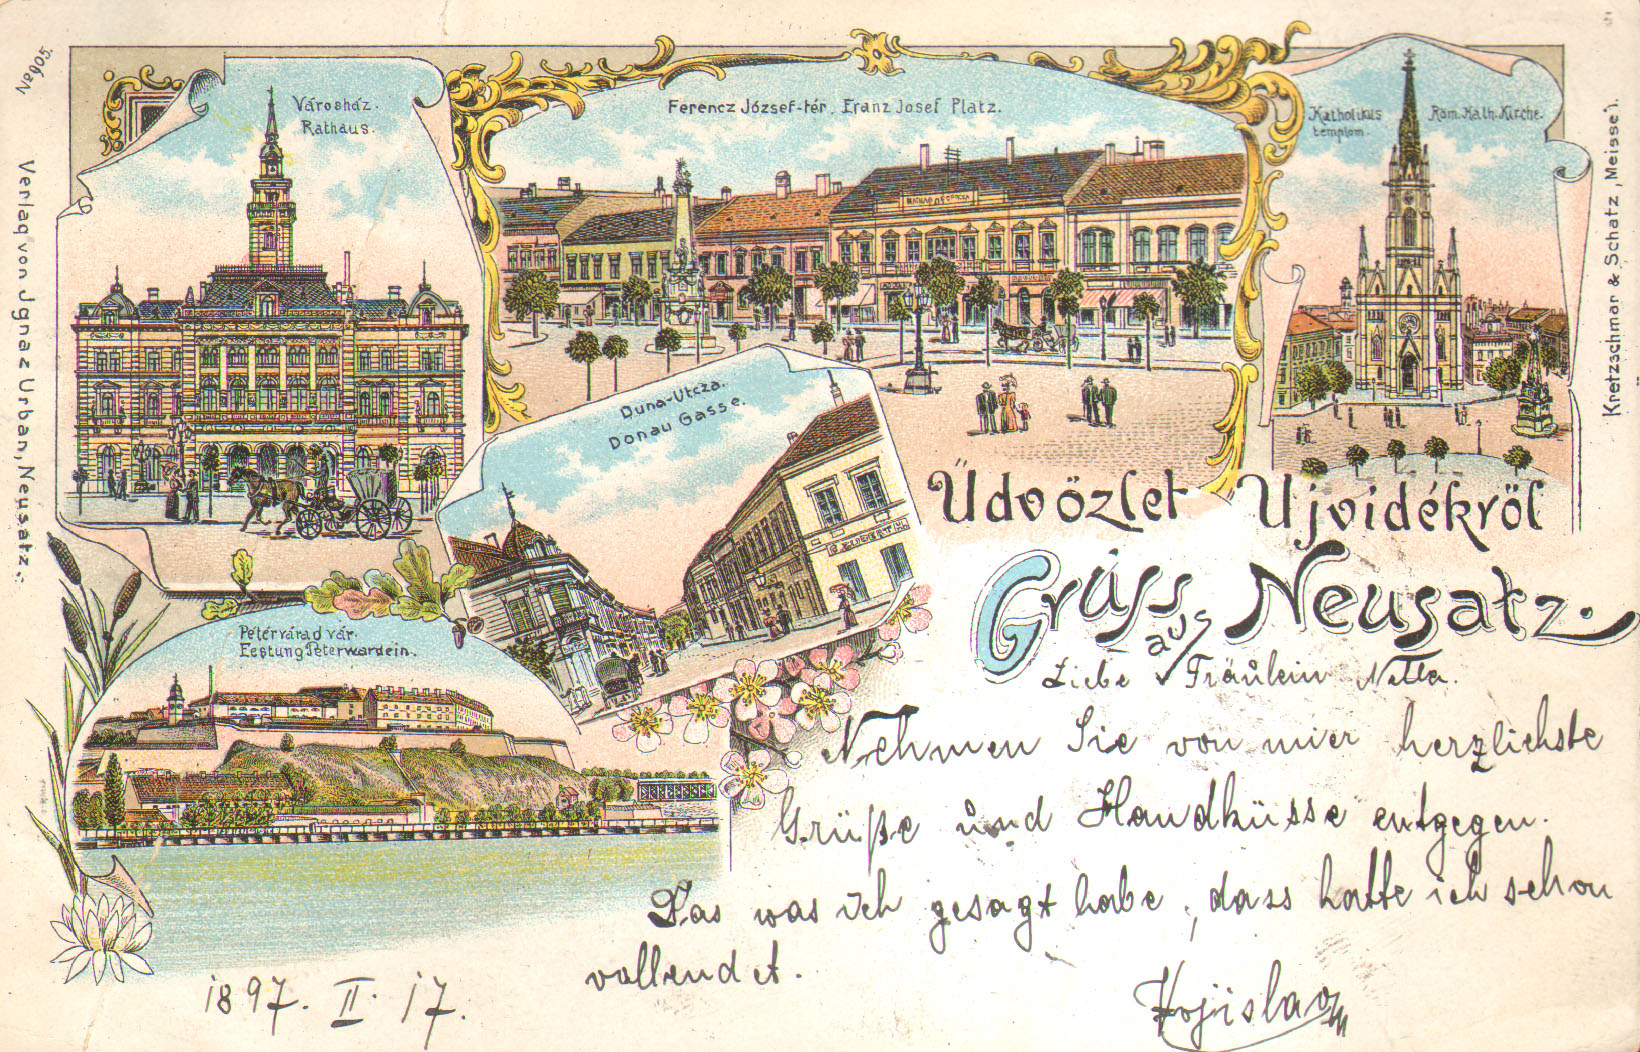 No 905.
Városház.
Rathaus.
Ferencz József-tér. Franz Josef Platz.
Katholikus
templom.
Röm. Kath. Kirche.
Duna-Utcza.
Donau Gasse.
Pétérvárad vár.
Festung Peterwardein.
Verlag von Jgnaz Urban, Neusatz.
Kretzschmar & Schatz, Meissen.
Üdvözlet Ujvidékről
Grüss aus Neusatz.
Liebe Fräulein Netta.
Nehmen Sie von mier herzlichste
Grüße und Handküsse entgegen.
Das was ich gesagt habe, dass hatte ich schon
vollendet.
1897. II. 17.
Vojislav